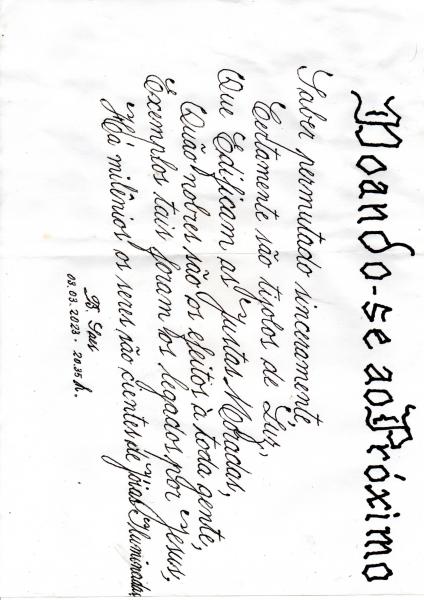 Doando-se ao Próximo
Saber permutado sinceramente,
Certamente são tijolos de Luz,
Que Edificam as Justas Moradas,
Quão nobres são os efeitos à toda gente,
Exemplos tais foram os legados por Jesus,
Há milênios os seres são cientes de Jóias Iluminadas,
03.03.2023 - 20:35 h.